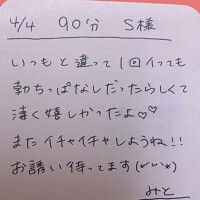 4/4 90分 S様
いつもと違って1回イっても
勃ちっぱなしだったらしくて
凄く嬉しかったよ♡♡
またイチャイチャしようね!!
お誘い待ってます(˶ˊᵕˋ˶)
みと